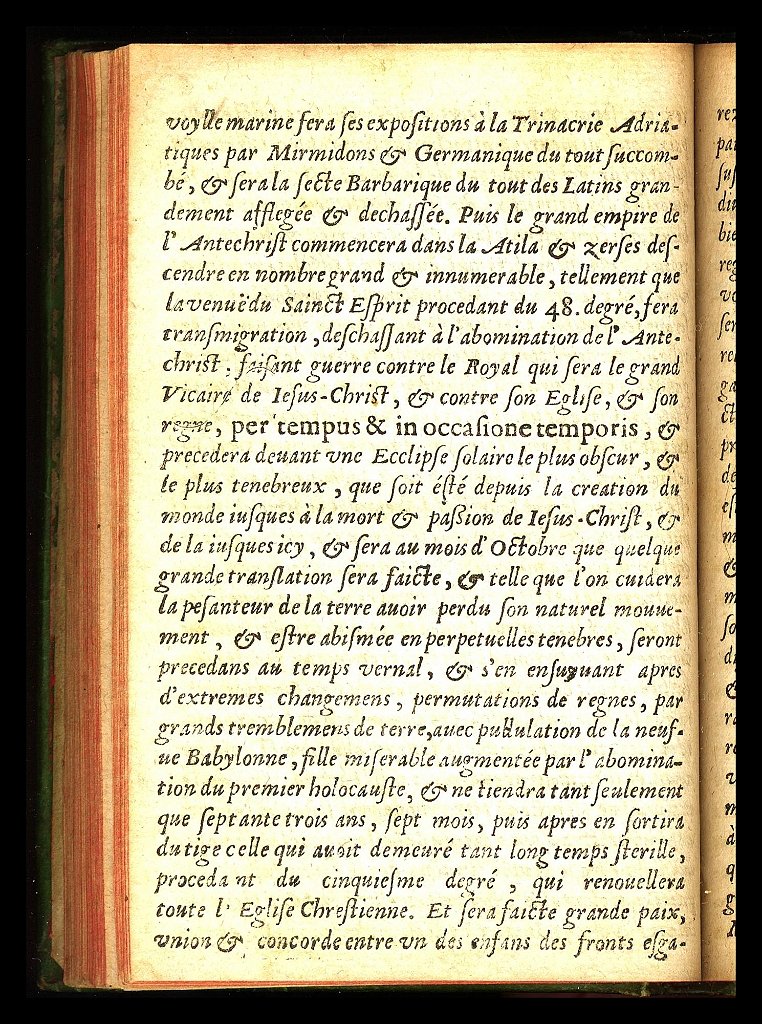 voylle marine fera ſes expoſitions à la Trinacrie Adria-
tiques par Mirmidons & Germanique du tout ſuccom-
bé, & ſera la ſecte Barbarique du tout des Latins gran-
dement afflegée & dechaſſée. Puis le grand empire de
l'Antechriſt commencera dans la Atila & zerſes deſ-
cendre en nombre grand & innumerable, tellement que
la venuë du Sainct Eſprit procedant du 48. degré, fera
tranſmigration, deſchaſſant à l'abomination de l'Ante-
chriſt. faiſant guerre contre le Royal qui ſera le grand
Vicaire de Ieſus-Chriſt, & contre ſon Egliſe, & ſon
regne, per tempus & in occaſione temporis, &
precedera deuant vne Ecclipſe ſolaire le plus obſcur, &
le plus tenebreux, que ſoit éſté depuis la creation du
monde iuſques à la mort & paſſion de Ieſus-Chriſt, &
de la iuſques icy, & ſera au mois d'Octobre que quelque
grande tranſlation ſera faicte, & telle que l'on cuidera
la peſanteur de la terre auoir perdu ſon naturel mouue-
ment, & eſtre abiſmée en perpetuelles tenebres, ſeront
precedans au temps vernal, & s'en enſuyuant apres
d'extremes changemens, permutations de regnes, par
grands tremblemens de terre, auec pullulation de la neuf-
ue Babylonne, fille miſerable augmentée par l'abomina-
tion du premier holocauſte, & ne tiendra tant ſeulement
que ſeptante trois ans, ſept mois, puis apres en ſortira
du tige celle qui auoit demeuré tant long temps ſterille,
procedant du cinquieſme degré, qui renouellera
toute l'Egliſe Chreſtienne. Et ſera faicte grande paix,
vnion & concorde entre vn des enfans des fronts eſga-